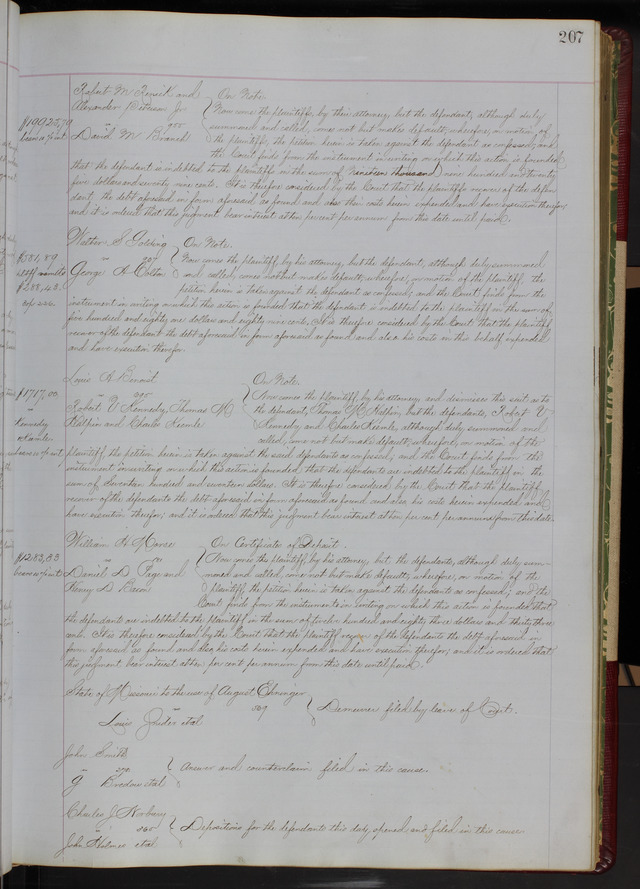 207
Robert M. Renick and
Alexander Peterson Jr
vs
David M. Branch
$1992579
bears 10 pr ct int
On Note.
Now come the plaintiffs, by their attorney, but the defendant, although duly
summoned and called, comes not but makes default; wherefore, on motion of
the plaintiffs, the petition herein is taken against the defendant as confessed; and
the Court finds from the instrument in writing on which the action is founded
that the defendant is indebted to the plaintiffs in the sum of nineteen thousand nine hundred and twenty
five dollars and seventy nine cents. It is therefore considered by the Court that the plaintiffs recover of the defen-
dant the debt aforesaid in form aforesaid as found and also their costs herein expended and have execution therefor;
and it is ordered that this judgment bear interest at ten per cent per annum from this date until paid.
Walter S. Golding
vs
George H. Colton
$581.89
$288.43.
On Note.
Now comes the plaintiff by his attorney, but the defendant, although duly summoned
and called, comes not but makes default; wherefore, on motion of the plaintiff, the
petition herein is taken against the defendant as confessed; and the Court finds from the
instrument in writing on which the action is founded that the defendant is indebted to the plaintiff in the sum of
five hundred and eighty one dollars and eighty nine cents. It is therefore considered by the Court that the plaintiff
recover of the defendant the debt aforesaid in form aforesaid as found and also his costs in this behalf expended
and have execution therefor.
Louis A. Benoist
vs
Robert V. Kennedy, Thomas M.
Halpin and Charles Keemle
$1717.00
vs
Kennedy
& Keemle
bears 10 pr ct int
On Note.
Now comes the plaintiff, by his attorney, and dismisses this suit as to
the defendant, Thomas M. Halpin; but the defendants, Robert V.
Kennedy and Charles Keemle, although duly summoned and
called, come not but make default; wherefore, on motion of the
plaintiff, the petition herein is taken against the said defendants as confessed; and the Court finds from the
instrument in writing on which this action is founded, that the defendants are indebted to the plaintiff in the
sum of seventeen hundred and seventeen dollars. It is therefore considered by the Court that the plaintiff
recover of the defendants the debt aforesaid in form aforesaid as found and also his costs herein expended and
have execution therefor; and it is ordered that this judgment bear interest at ten per cent per annum from this date.
William H. Maree
vs
Daniel D. Page and
Henry D. Bacon
$1283.33
bears 10 pr ct int
On Certificate of Deposit.
Now comes the plaintiff, by his attorney, but the defendants, although duly sum-
moned and called, come not but make default; wherefore, on motion of the
plaintiff, the petition herein is taken against the defendants as confessed; and the
Court finds from the instruments in writing on which this action is founded that
the defendants are indebted to the plaintiff in the sum of twelve hundred and eighty three dollars and thirty three
cents. It is therefore considered by the Court that the plaintiff recover of the defendants the debt aforesaid in
form aforesaid as found and also his costs herein expended and have execution therefor; and it is ordered that
this judgment bear interest at ten per cent per annum from this date until paid.
State of Missouri to the use of August Ehninger
vs
Louis et al
Demurrer filed by leave of Court.
John Smith
vs
G. Bredow et al
Answer and counterclaim filed in this cause.
Charles J. Norbury
vs
John Holmes et al
Depositions for the defendants this day opened and filed in this cause.